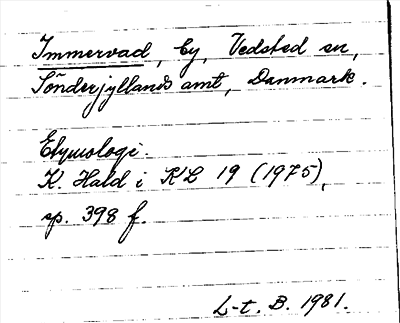 Immervad, by, Vedsted sn,
Sönderjyllands amt, Danmark.
Etymologi:
K. Hald i KL 19 (1975),
sp. 398 f.
L-t. B. 1981.